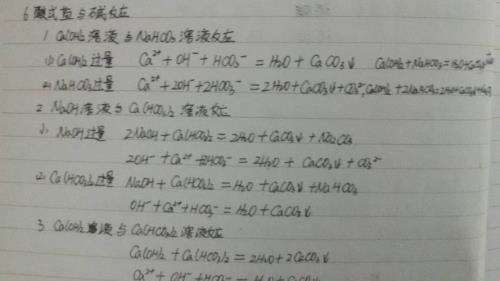 6 酸式盐与碱反应
1. Ca(OH)₂溶液与NaHCO₃溶液反应
(1) Ca(OH)₂过量 Ca²⁺+OH⁻+HCO₃⁻=H₂O+CaCO₃↓ Ca(OH)₂+NaHCO₃=
(2) NaHCO₃过量 Ca²⁺+2OH⁻+2HCO₃⁻=2H₂O+CaCO₃↓+CO₃²⁻ Ca(OH)₂+2NaHCO₃=2H₂O+CaCO₃↓+
2. NaOH溶液与Ca(HCO₃)₂溶液反应
(1) NaOH过量 2NaOH+Ca(HCO₃)₂=2H₂O+CaCO₃↓+Na₂CO₃
2OH⁻+Ca²⁺+2HCO₃⁻=2H₂O+CaCO₃↓+CO₃²⁻
(2) Ca(HCO₃)₂过量 NaOH+Ca(HCO₃)₂=H₂O+CaCO₃↓+NaHCO₃
OH⁻+Ca²⁺+HCO₃⁻=H₂O+CaCO₃↓
3. Ca(OH)₂溶液与Ca(HCO₃)₂溶液反应
Ca(OH)₂+Ca(HCO₃)₂=2H₂O+2CaCO₃↓
Ca²⁺+OH⁻+HCO₃⁻=H₂O+CaCO₃↓